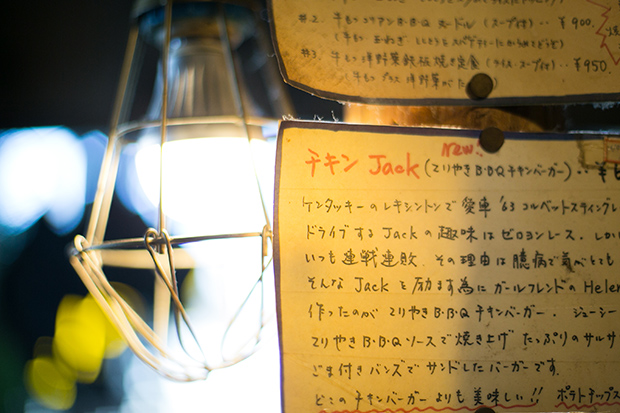 #2. 牛もつコチジャンB・B・Q ヌードル (スープ付) ‥ ¥900.
#3. 牛もつ洋野菜鉄板焼き定食 (ライス・スープ付) ‥ ¥950.
(牛もつプラス 洋野菜が
New!
チキン Jack (てりやきB・B・Qチキンバーガー) ‥ ¥
ケンタッキーのレキシントンで愛車 '63 コルベットスティングレ
ドライブする Jack の趣味はゼロヨンレース. しかし
いつも連戦連敗. その理由は臆病で気がとても
そんな Jack を励ます為にガールフレンドの Helen
作ったのが てりやきB・B・Qチキンバーガー. ジューシー
てりやきB・B・Qソースで焼き上げ たっぷりのサルサ
ごま付きバンズでサンドしたバーガーです.
どこのチキンバーガーよりも美味しい!! ポテトチップス